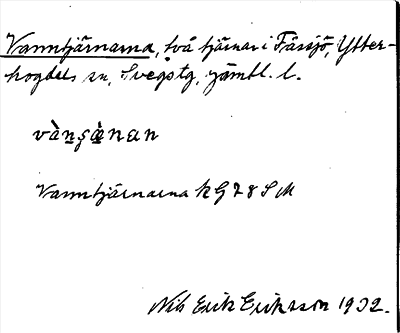 Vanntjärnarna, två tjärnar i Fåssjö, Ytter-
hogdals sn, Svegs tg, jämtl. l.
vànşä̀nan
Vanntjärnarna kG 78 SM
Nils Erik Eriksson 1932.